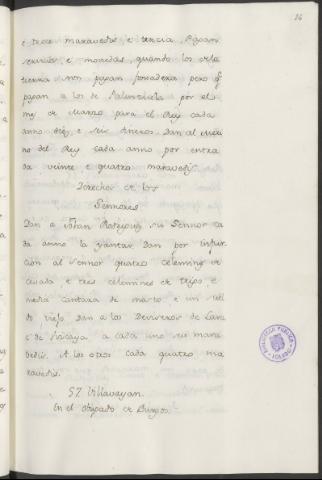 36
e trece maravedis e tercia. Pagan
servicio e monedas, quando los de la
tierra non pagan fonsadera pero q̃
pagan a los de Palenzuela por el
mes de Marzo para el Rey cada
anno diez e seis dineros. Dan al Meri
no del Rey cada anno por entra
da veinte e quatro maravedis.
Derechos de los
Sennores
Dan a Johan Rodriguez su Sennor ca
da anno la yantar. Dan por infur
cion al Sennor quatro celemines de
cevada e tres celemines de trigo e
media cantara de mosto e un
viejo. Dan a los Deviseros de Lara
e de Vizcaya a cada uno seis mara
vedis. A los otros cada quatro ma
ravedis.
57 Villavayan.
En el Obispado de Burgos
BIBLIOTECA PUBLICA
TOLEDO